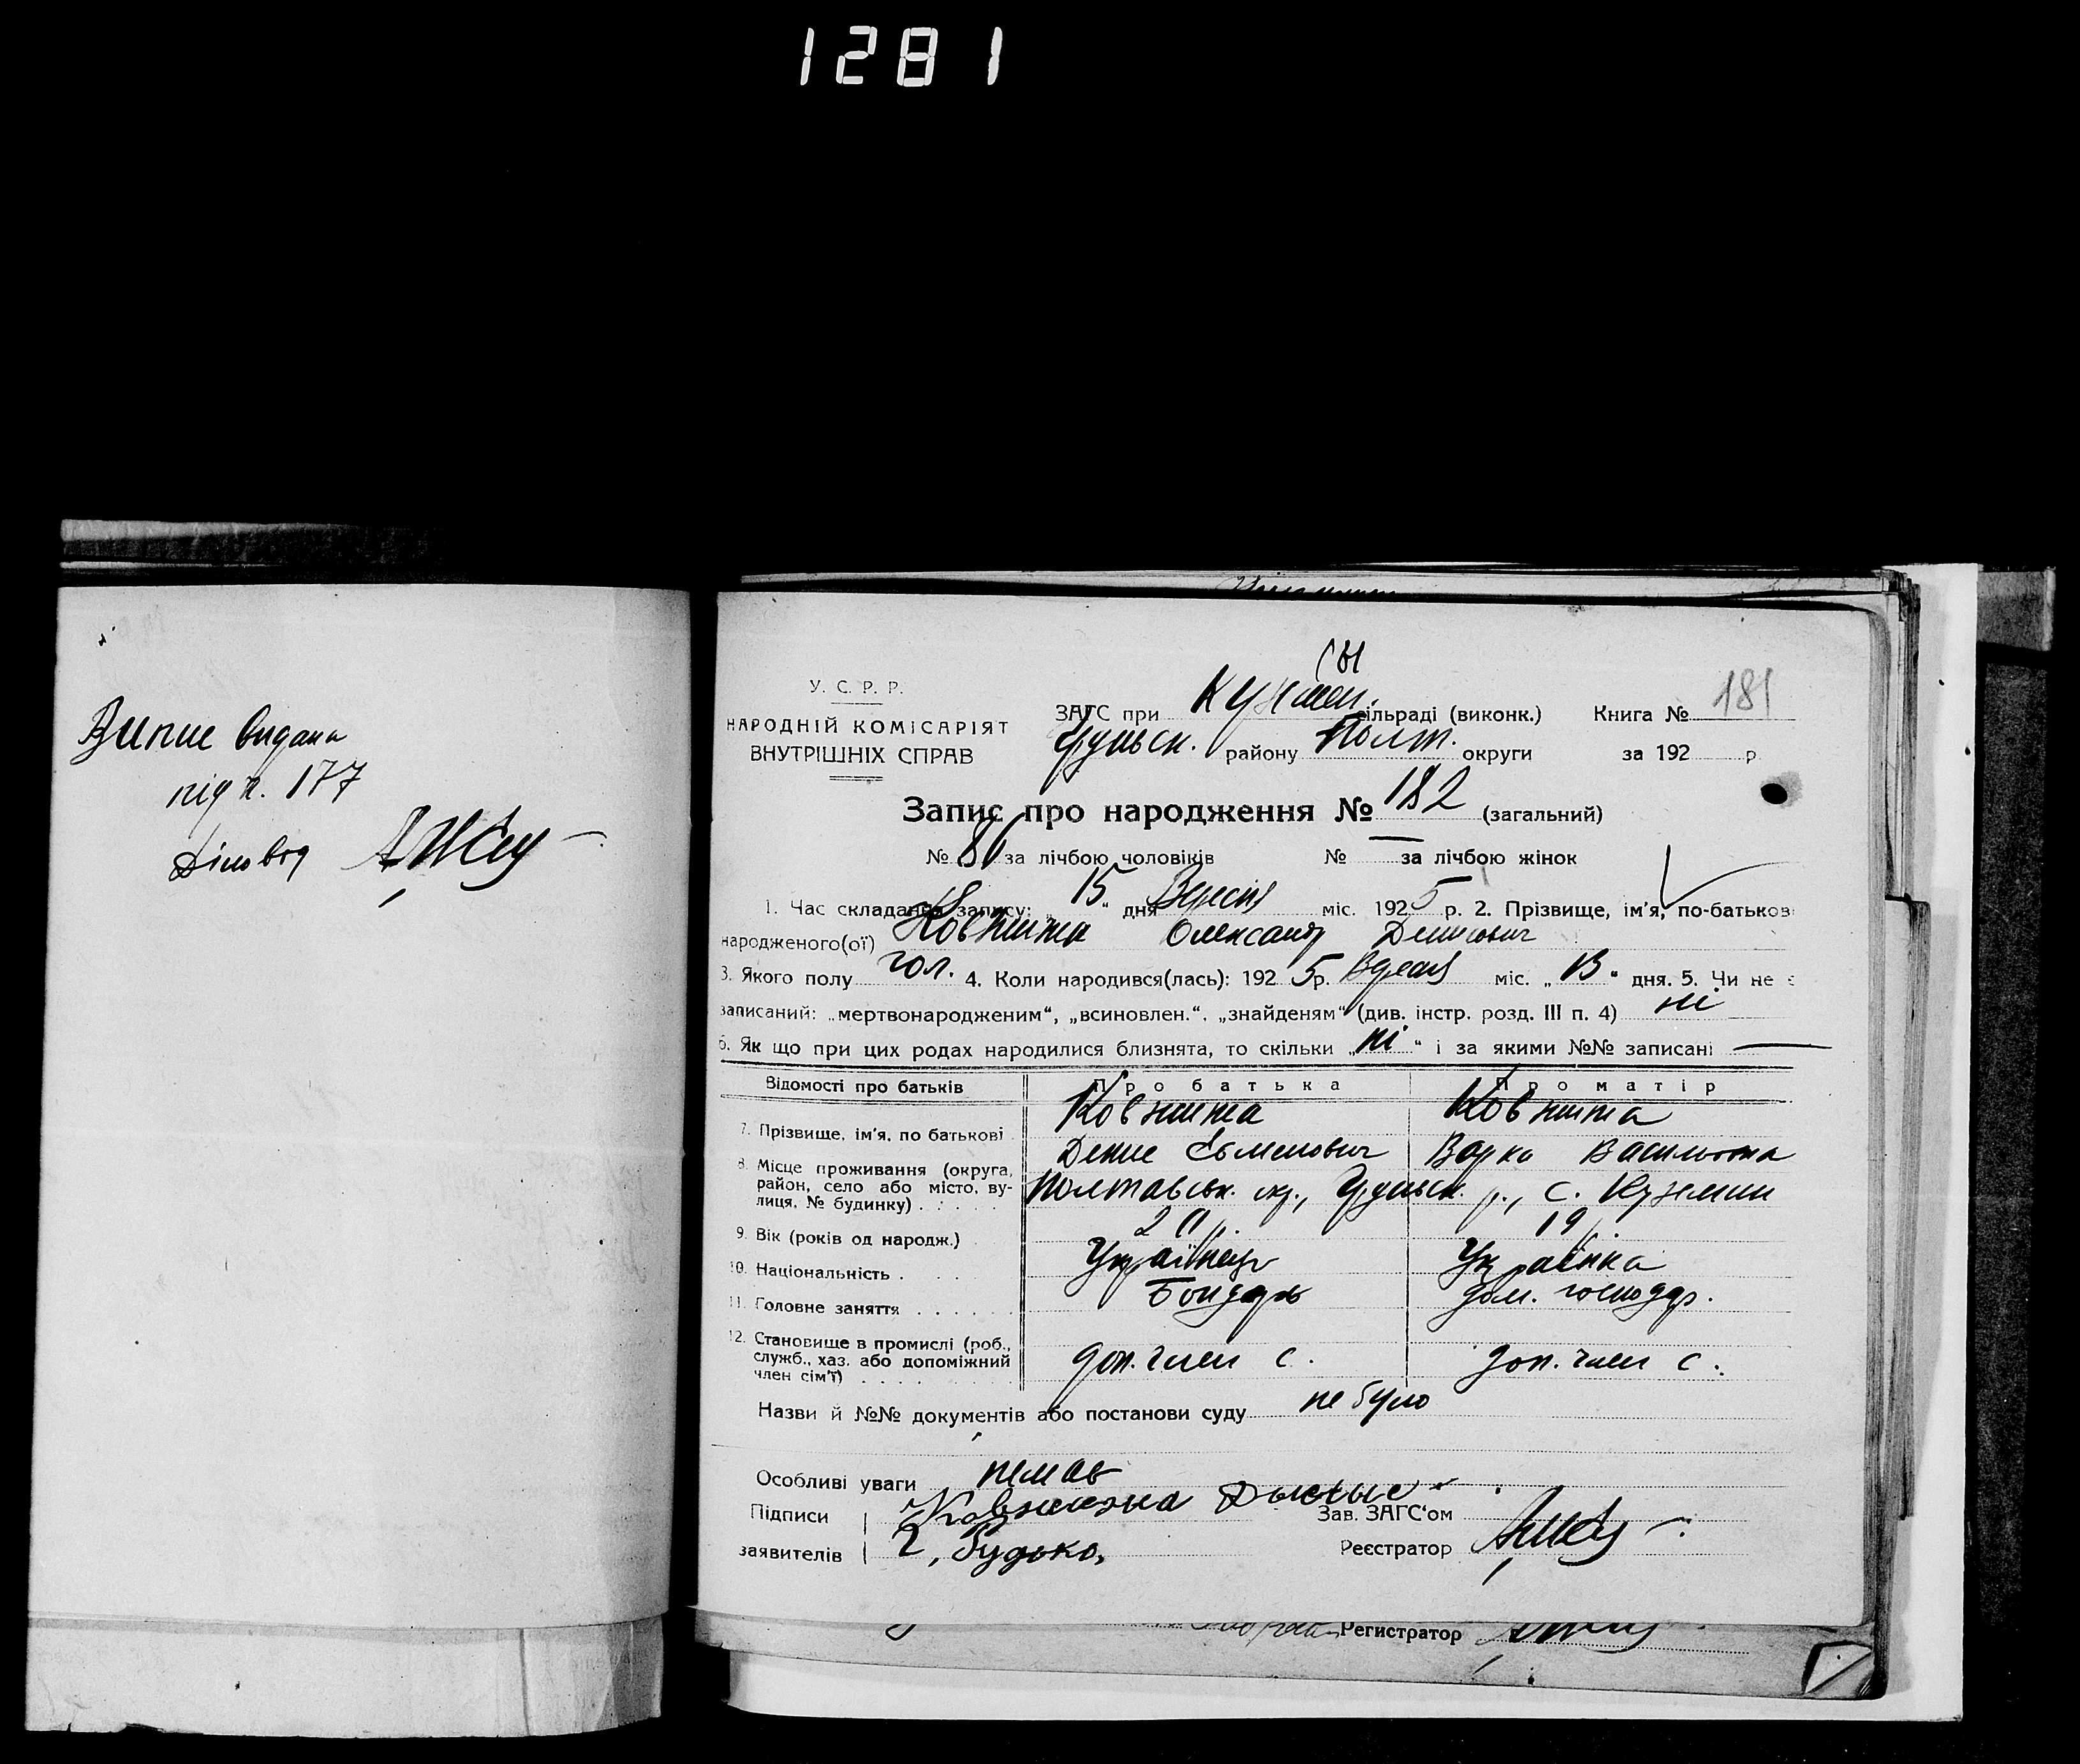 1281
Випис видана
під н. 177
Діловод
У. С. Р. Р.
НАРОДНІЙ КОМІСАРІЯТ
ВНУТРІШНІХ СПРАВ
ЗАГС при Кузмен. сільраді (виконк.) Книга № 181
району Полт. округи за 192 р
Запис про народження № 182 (загальний)
№ 86 за лічбою чоловіків № — за лічбою жінок
1. Час складання запису: „15" дня Вересня міс. 1925 р. 2. Прізвище, ім'я, по-батькові
народженого(ої) Ковжига Олександр Денисович
3. Якого полу чол. 4. Коли народився(лась): 1925 р. Вересня міс. „13" дня. 5. Чи не є
записаний: „мертвонародженим", „всиновлен.", „знайденям" (див. інстр. розд. III п. 4) ні
6. Як що при цих родах народилися близнята, то скільки „ні" і за якими №№ записані —
Відомості про батьків Про батька Про матір
7. Прізвище, ім'я, по батькові Ковжига Ковжига
Денис Євменович Варка Василівна
8. Місце проживання (округа, район, село або місто, вулиця, № будинку) Полтавськ. окр., р., с. Куземин
9. Вік (років од народж.) 20 р. 19 р.
10. Національність Українець Українка
11. Головне заняття Бондарь дом. господар.
12. Становище в промислі (роб., служб., хаз. або допоміжний член сім'ї) доп. член с. доп. член с.
Назви й №№ документів або постанови суду не було
Особливі уваги немає
Підписи Ковжига Дыныс Зав. ЗАГС'ом
заявителів 2, Будько, Реєстратор
Регистратор